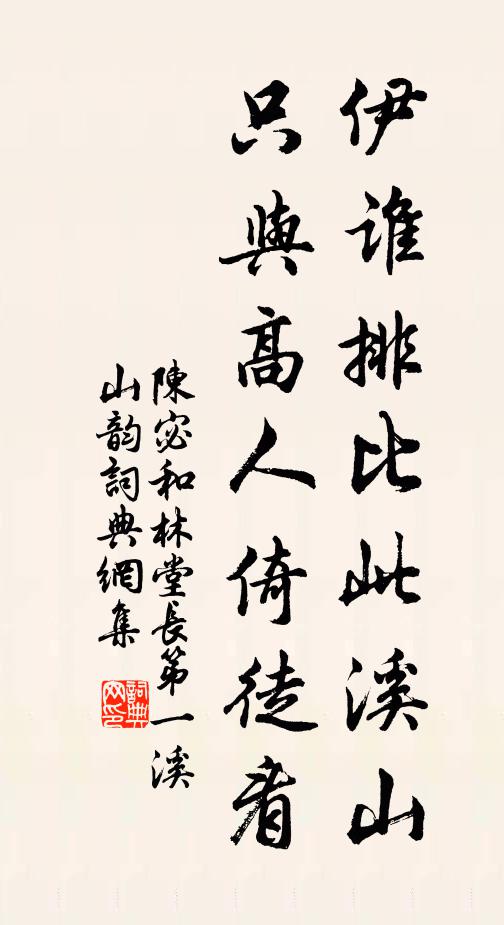 伊誰排比此溪山
只與高人倚徒看
陳宓和林堂長第一溪
山韵詞典網集
詞典
网印